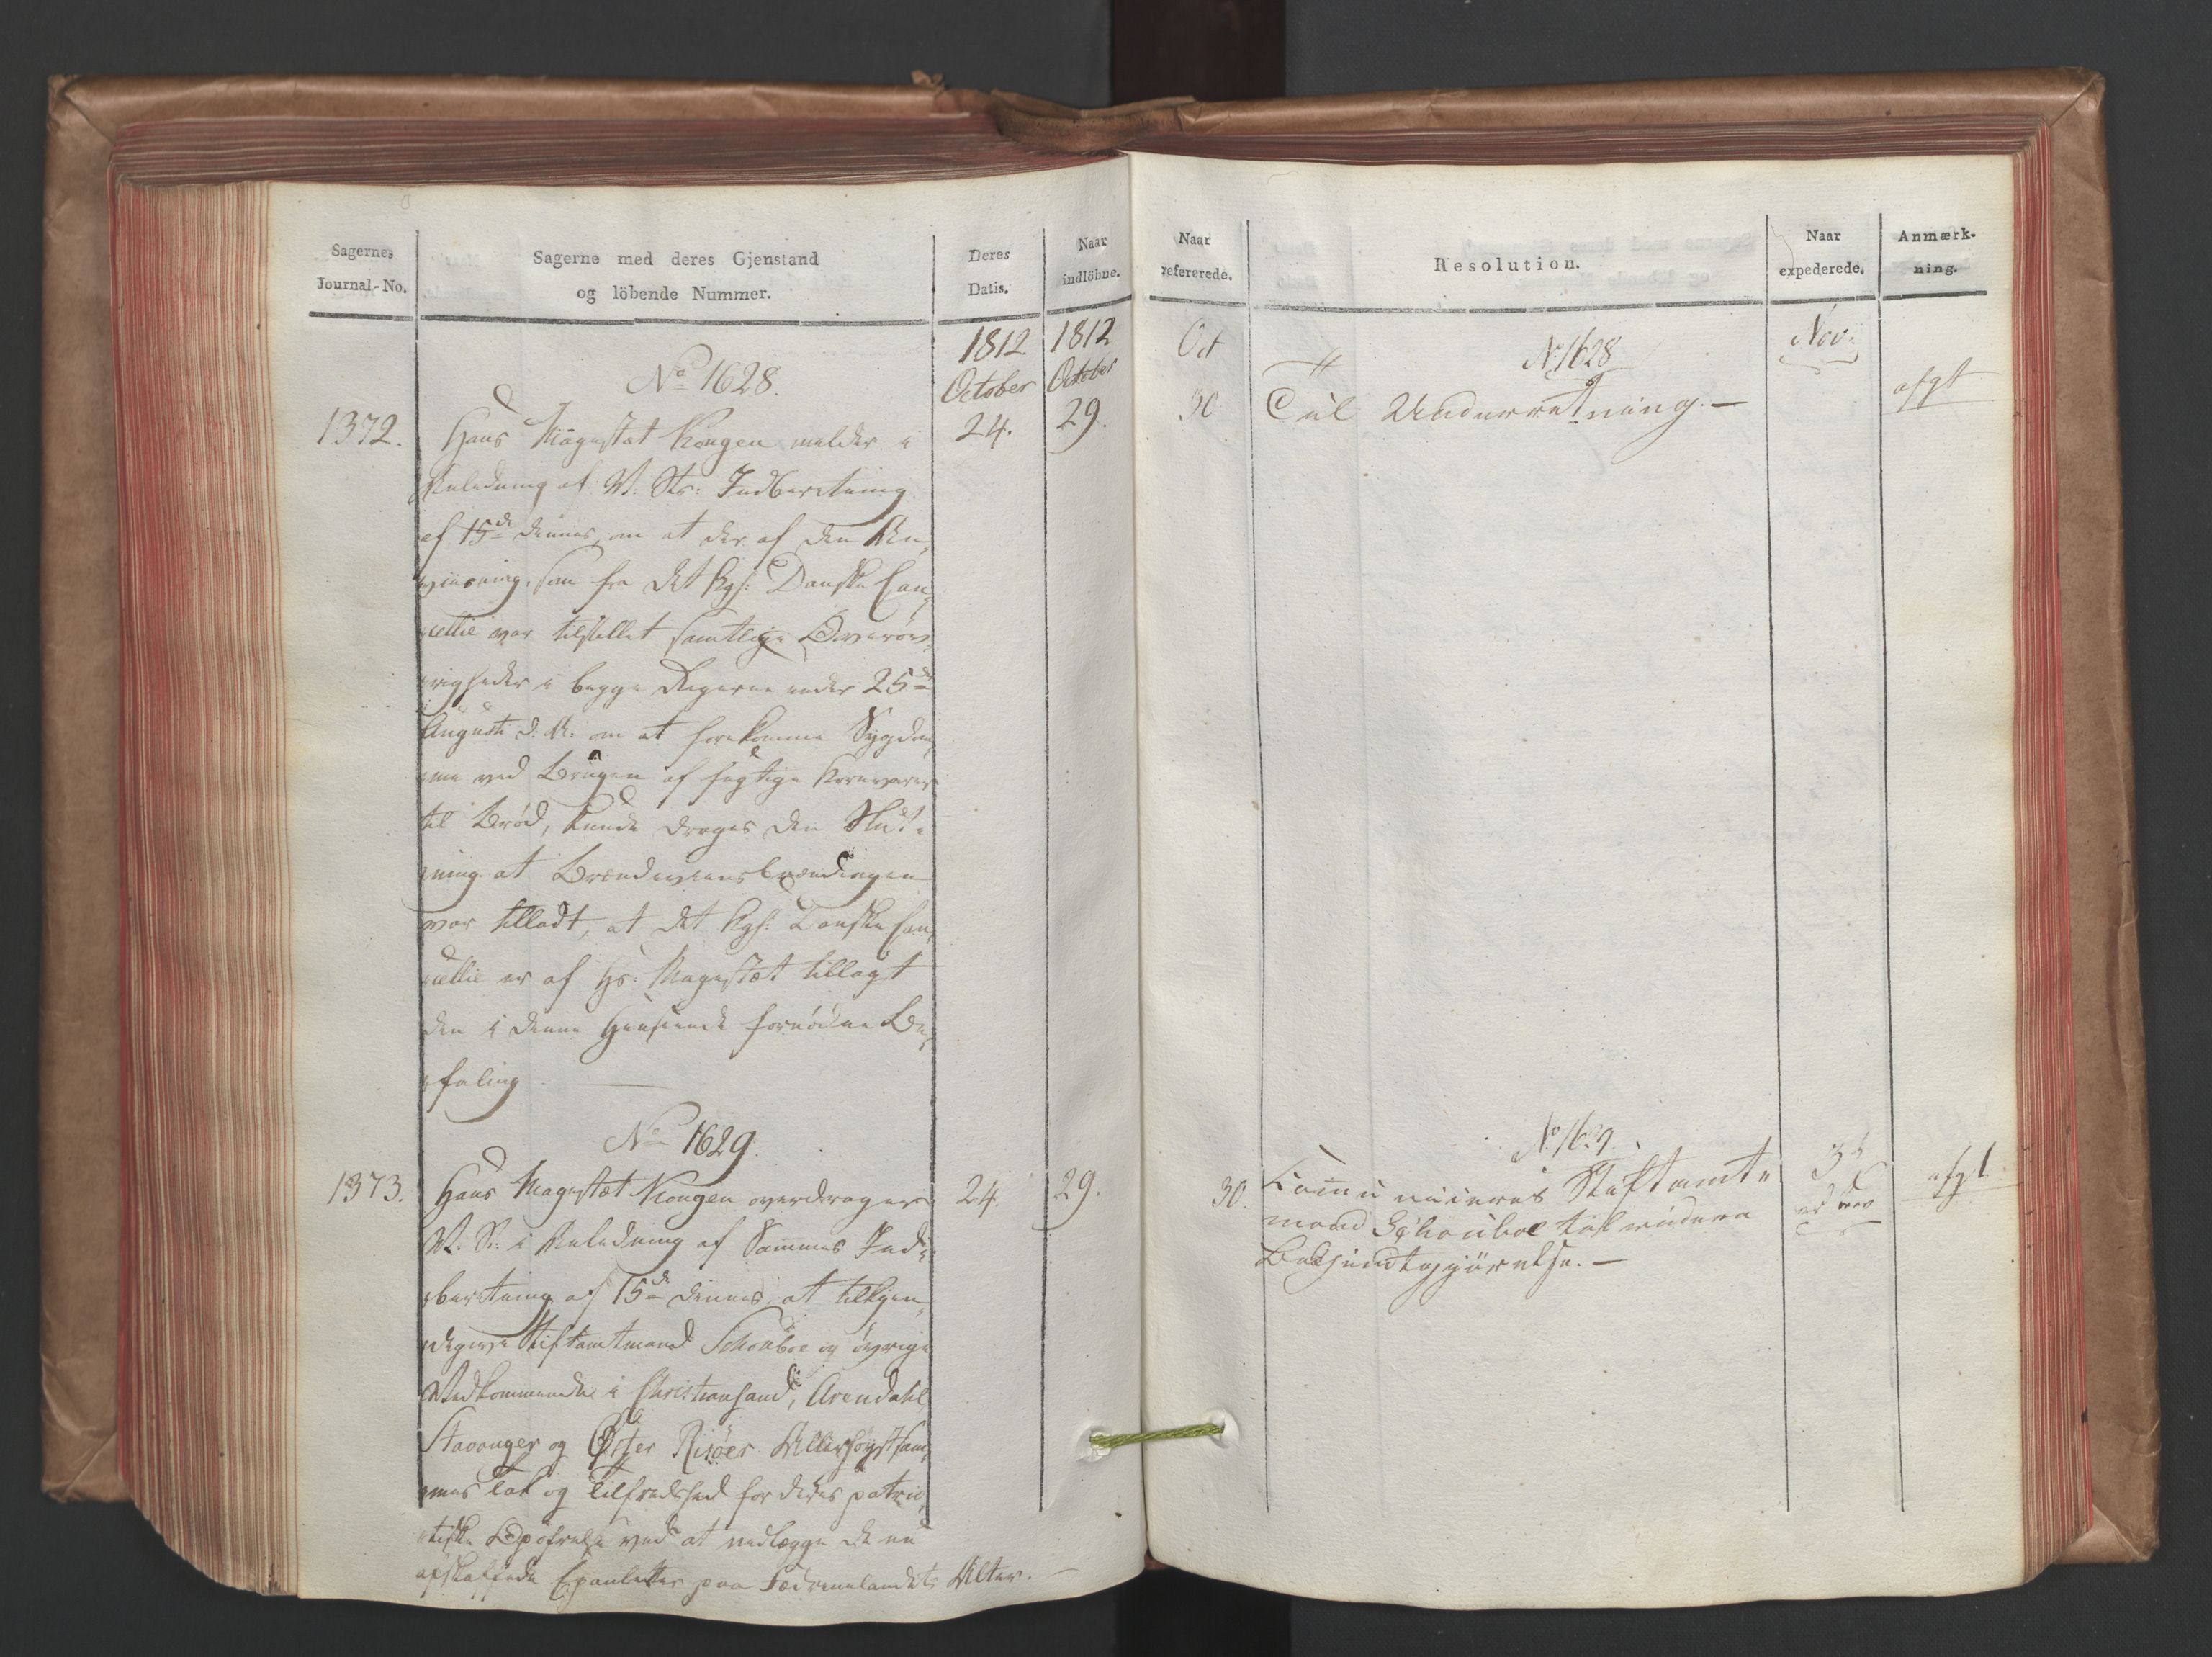 Sagernes
Journal-No.
Sagerne med deres Gjenstand
og löbende Nummer.
Deres
Datis.
Naar
indlöbne.
1812
October
1812
October
No 1628.
1372.
24.
29.
Hans Magestæt Kongen melder i
Anledning af V: Sts: Indberetning
af 15de dennes, om at der af den An¬
viisning, som fra det Kgl: Danske Can¬
cellie var tilstillet samtlige Øverøv¬
righeder i begge Rigerne under 25de
Augusti d: A: om at forekomme Sygdom¬
me ved Brugen af fugtige Kornvarer
til Brød, kunde drages den Slut¬
ning at Brændeviinsbrændingen
var tilladt, at det Kgl: Danske Can¬
cellie er af Hs: Magestæt tillagt
den i denne Henseende fornødne Be¬
faling
No 1629.
1373.
24.
29.
Hans Magestæt Kongen overdrager
V: St: i Anledning af Sammes Ind¬
beretning af 15de dennes, at tilkjen¬
degive Stiftamtmand Schouboe og øvrige
Vedkommende i Christiansand, Arendahl
Stavanger og Øster Risöer Allerhøystsam¬
mes Tak og Tilfredshed for deres patrio¬
tiske Opofrelse ved at nedlægge de nu
afskaffede Epauletter paa Fædrenelandets Alter. —
Naar
refererede.
Resolution.
Naar
expederede.
Anmærk-
ning.
Oct
No 1628
Nov:
30
Til Underretning. —
afgt
No 1629.
30.
Communiceres Stiftamt¬
mand Schouboe til videre
Bekjendtgjörelse. —
3d
afgt